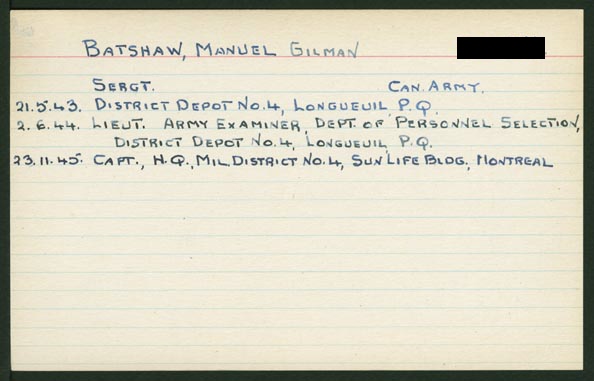 BATSHAW, MANUEL GILMAN
SERGT. CAN. ARMY.
21.5.43. DISTRICT DEPOT NO.4, LONGUEUIL P.Q.
2.6.44. LIEUT. ARMY EXAMINER, DEPT. OF PERSONNEL SELECTION,
DISTRICT DEPOT NO.4, LONGUEUIL, P.Q.
23.11.45. CAPT., H.Q., MIL. DISTRICT NO.4, SUN LIFE BLDG, MONTREAL